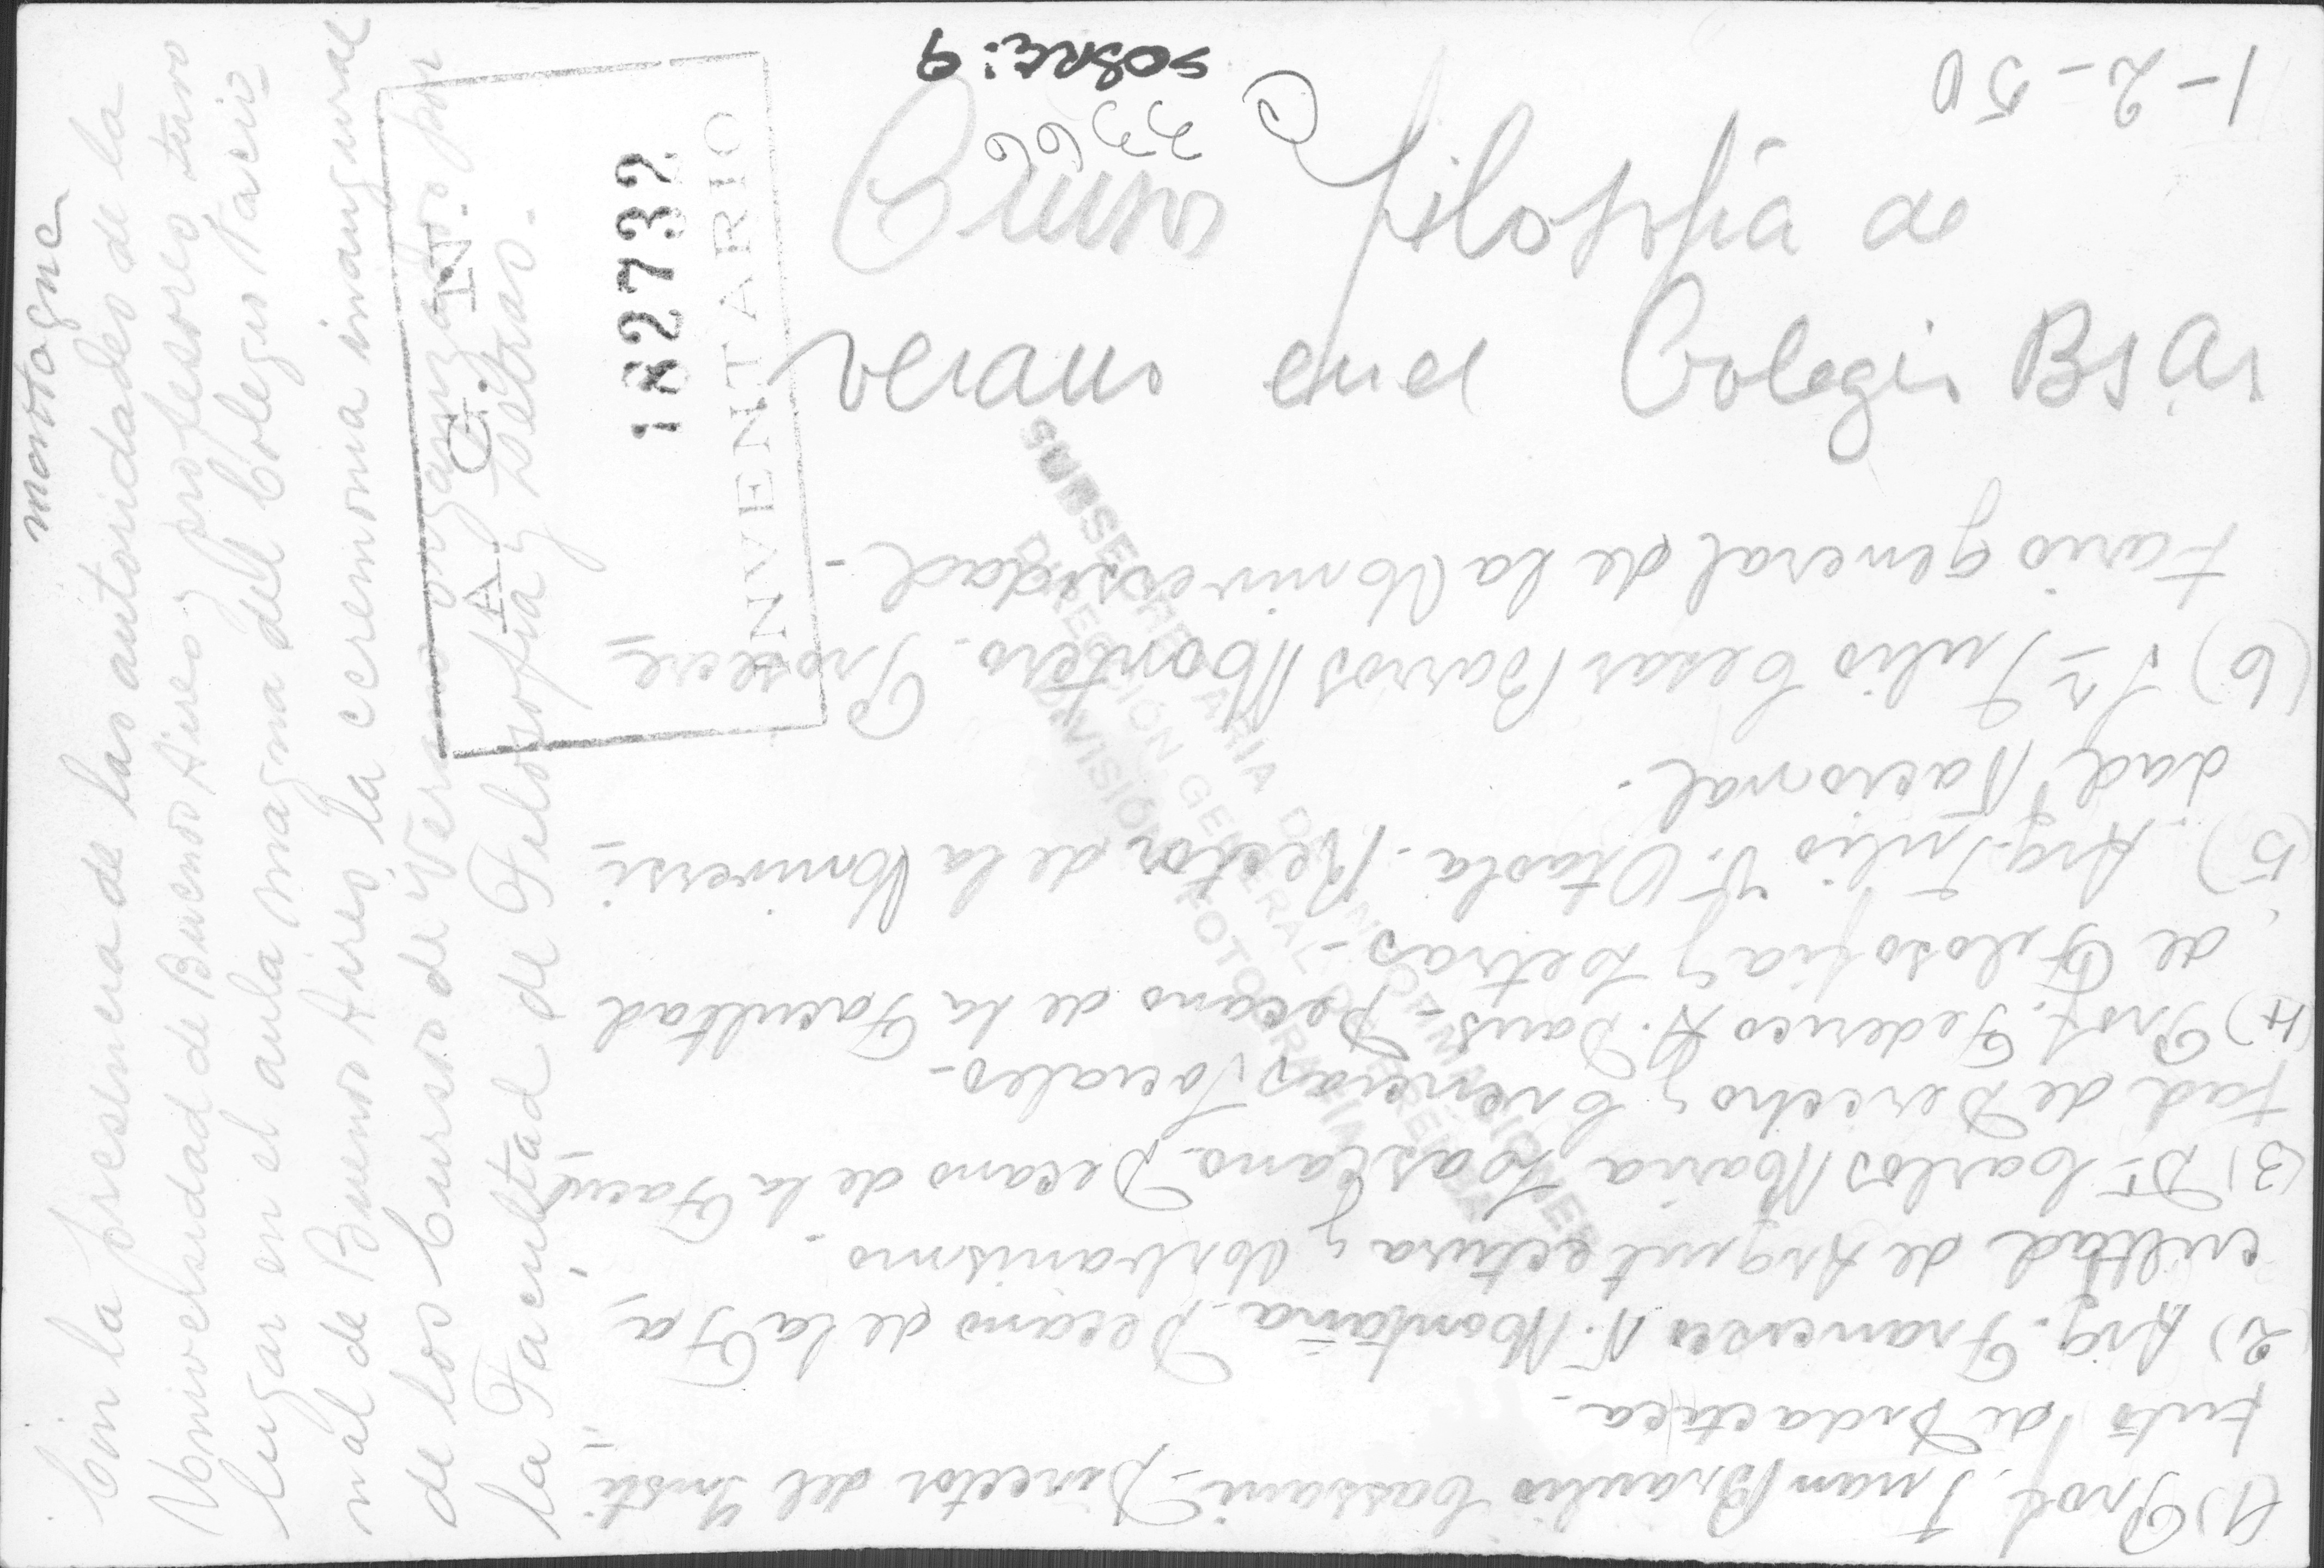 montagne
Con la presencia de las autoridades de la
Universidad de Buenos Aires y profesores tuvo
lugar en el aula magna del Colegio Nacio
nal de Buenos Aires, la ceremonia inaugural
de los Cursos de Verano organizados por
la Facultad de Filosofía y Letras.
A. G. N.
182732
INVENTARIO
SOBRE: 9
3366
1
1-2-50
filosofía de
verano en el Colegio Bs As
(1) Prof. Juan Braulio Cassani - Director del Insti
tuto de Didactica -
(2) Arq. Francisco N. Montaña - Decano de la Fa
cultad de Arquitectura y Urbanismo
(3) Dr. Carlos Maria Lascano - Decano de la Facul
tad de Derecho y Ciencias Sociales -
(4) Prof. Federico A. Daus - Decano de la Facultad
de Filosofia y Letras -
(5) Arq. Julio V. Otaola - Rector de la Universi
dad Nacional -
(6) Sr. Julio Cesar Barros Montero - Prosecre
tario general de la Universidad -
SUBSECRETARIA DE INFORMACIONES
DIRECCIÓN GENERAL DE PRENSA
DIVISIÓN FOTOGRAFÍA